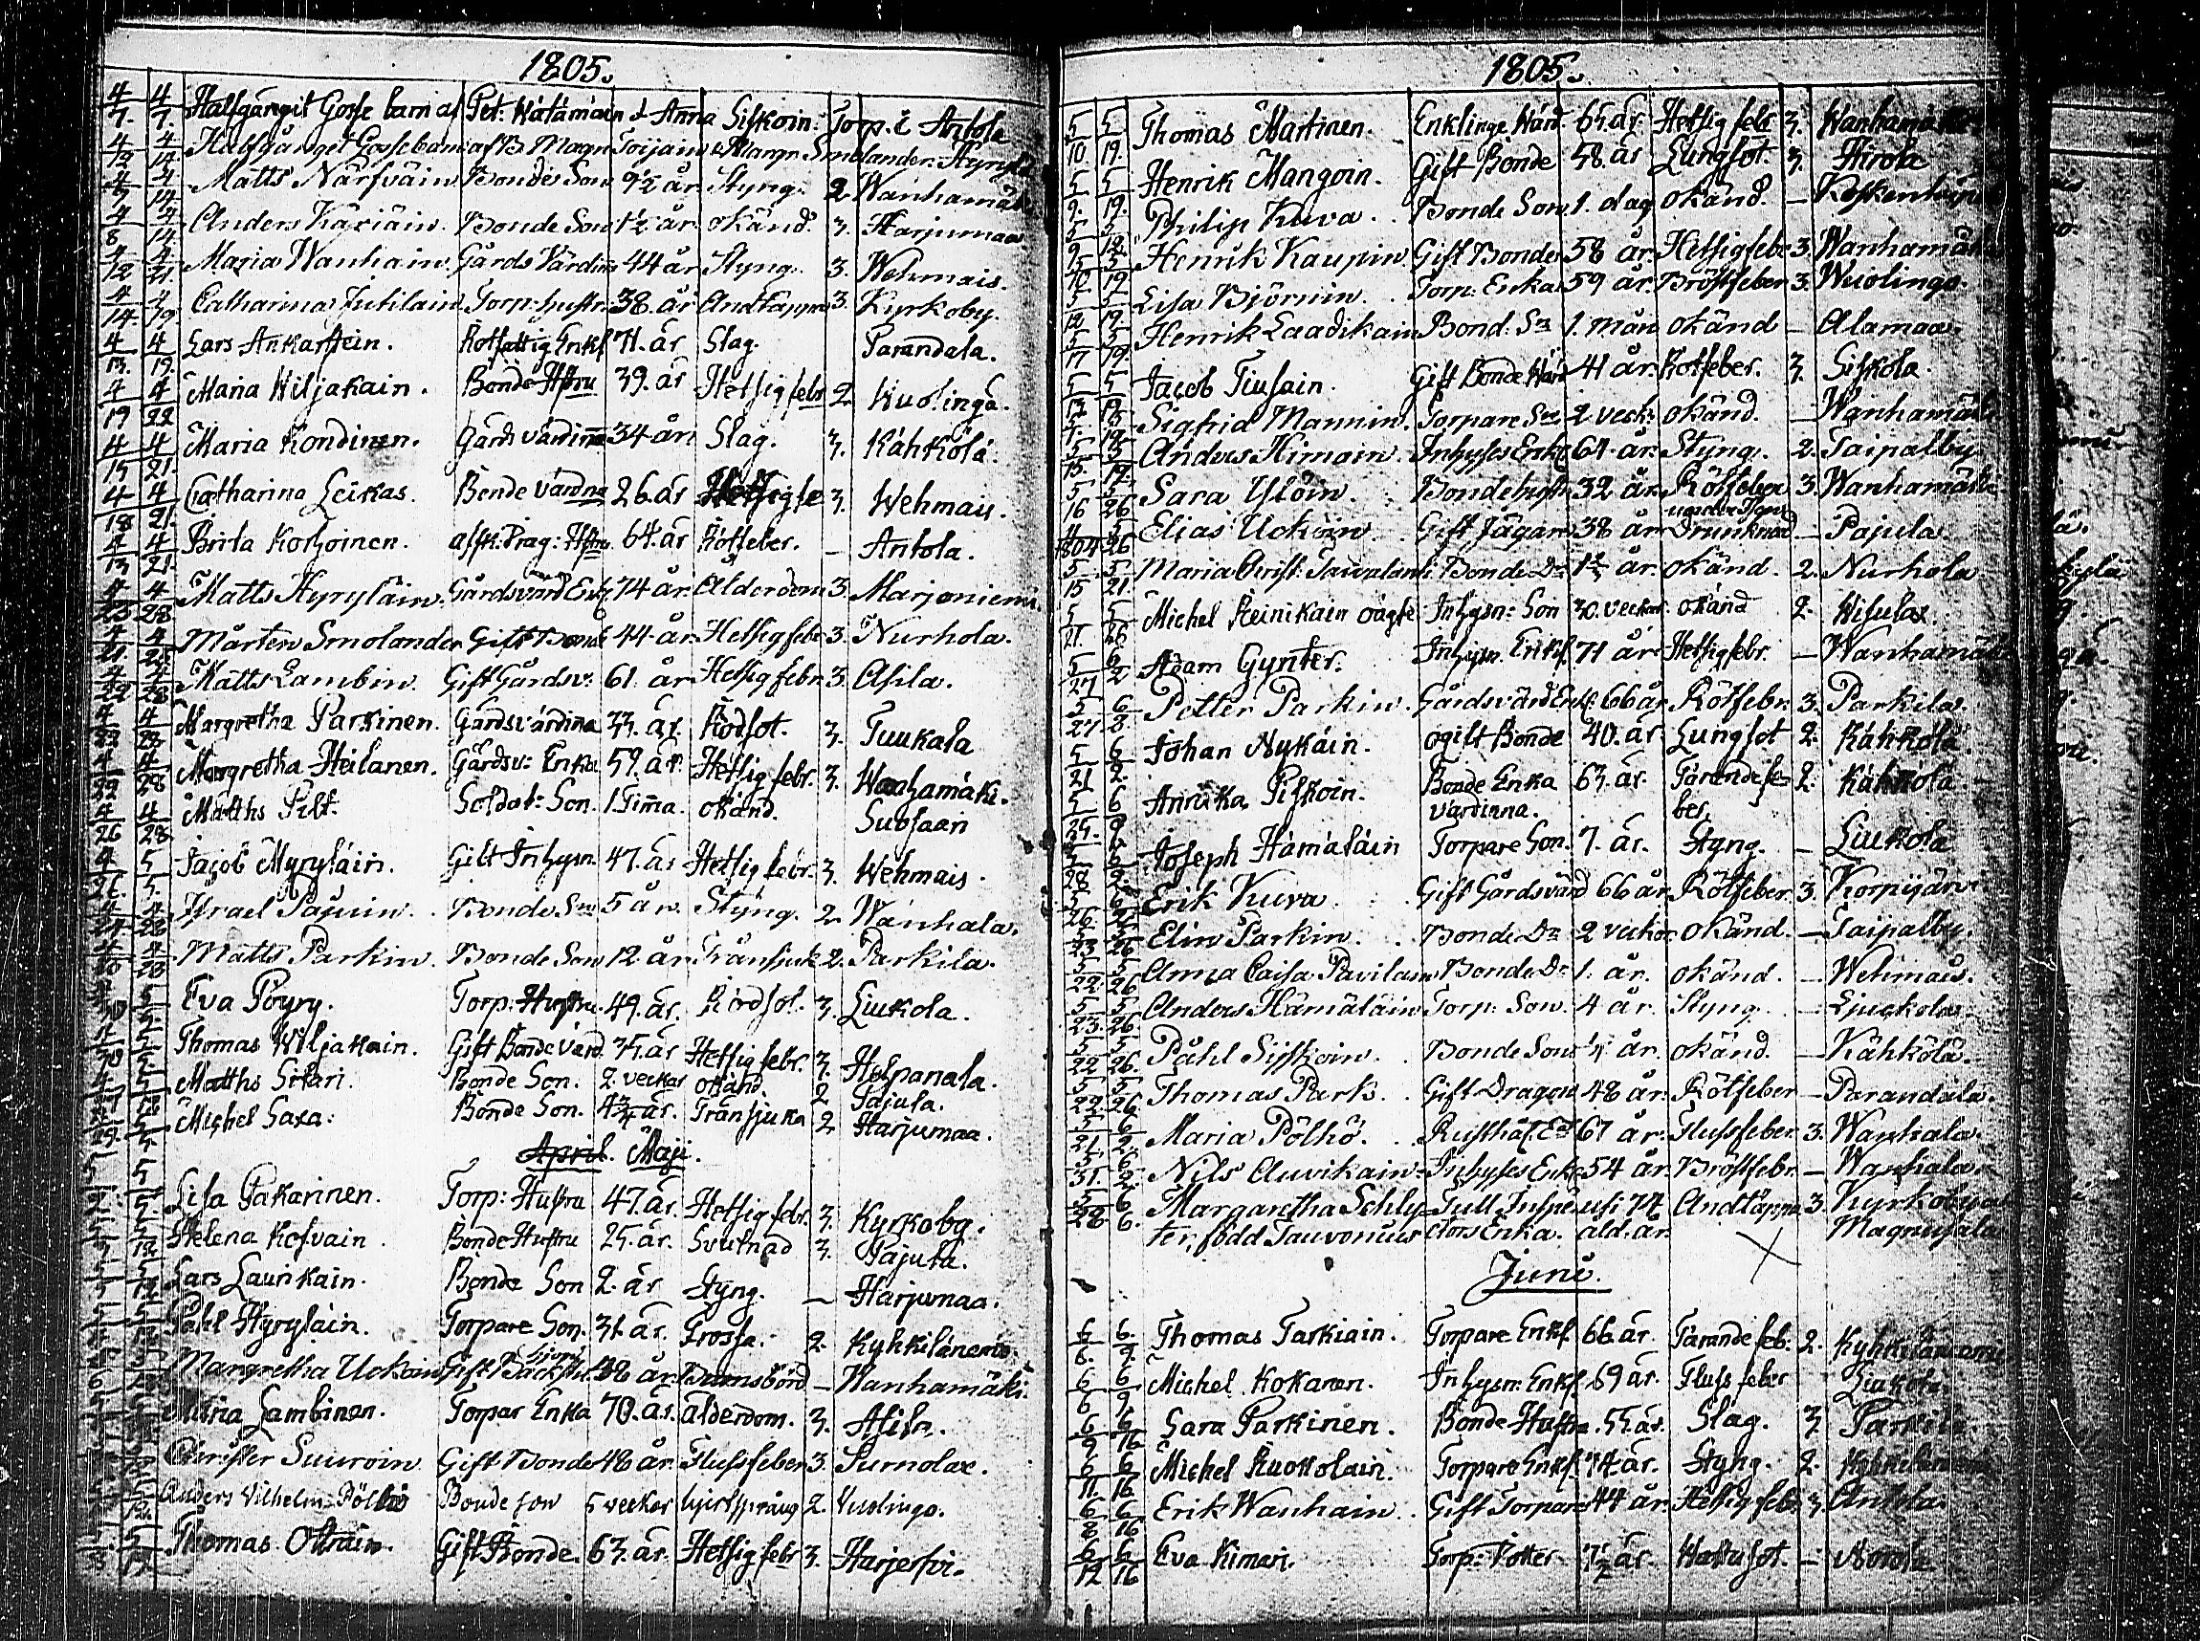 1805.
4/7. 4/7. Halfgångit Gosse barn af Pet: Hätämäin & Anna Siskoin: Torp. i Antola
4/13 4/14. Halfgånget Gossebarn af B. Magn Toijain & Margr. Smolander. Hyrylä
4/5 4/14 Matts Närfväin Bonde Son 9½ år Styng. 2 Wanhamäki
4/8 4/14. Anders Käriäin. Bonde Son 1½ år okänd. 3. Harjumaa
4/12 4/21. Maria Wanhain. Gårds Värdin̄ 44 år Styng. 3. Wehmais.
4/14. 4/19. Catharina Jutilain Torp: hustr. 38. år Andtäppa 3. Kyrkoby.
4/13. 4/19. Lars Ankarstein. Rotfattig Enkl 71. år Slag. Parandala.
4/19 4/22 Maria Wiljakain. Bonde Hstru 39. år Hetsig febr 2 Wuolinga.
4/15 4/21. Maria Kondinen. Gårds värdin̄a 34 år. Slag. 3. Kähkölä.
4/18 4/21. Catharina Leikas. Bonde värdna 26. år Hetsig fe 3. Wehmais.
4/13 4/21. Brita Korhoinen. afsk: Drag: Hstru 64. år Rötfeber. – Antola.
4/23 4/28 Matts Hyryläin. Gårdsvärd Enkl 74 år Ålderdom 3. Marjoniemi.
4/21. 4/28 Mårten Smolander Gift Bonde 44. år Hetsig febr 3. Nurhola.
4/22 4/28 Matts Lambin. Gift Gårdsv. 61. år Hetsig febr. 3. Asila.
4/22 4/28 Margretha Parkinen. Gårdsvärdina 33. år. Rödsot. 3. Tuukala
4/22 4/28 Margretha Heilanen. Gårdsv: Enka 59. år. Hetsig febr. 3. Wanhamäki.
4/26 4/28 Matths Pilt. Soldat: Son. 1. Tim̄a. okänd. Suosaari
4 5 Jacob Myryläin. Gift Inhysn. 47. år Hetsig febr. 3. Wehmais.
Israel Pasuin. Bonde Son 5 år. Styng. 2. Wanhala.
Matts Parkin. Bonde Son 12. år Trånsjuk 2. Parkila.
Eva Pöyry. Torp: Hustru. 49. år. Rödsot. 3. Liukola.
Thomas Wiljakain. Gift Bonde värd. 35. år Hetsig febr. 3. Holpanala.
Matths Sikari. Bonde Son. 2. veckor okänd. 2 Pajula.
Michel Saxa: Bonde Son. 4¾ år. Trånsjuka 2 Harjumaa.
April. Maji.
Lisa Pakarinen. Torp: Hustru 47. år. Hetsig febr. 3. Kyrkoby.
Helena Kofvain. Bonde Hustru 25. år. Svulnad 3. Pajula.
Lars Laurikain. Bonde Son 2. år Styng. – Harjumaa.
Påhl Hyryläin. Torpare Son. 31. år. Trossa. 2. Kyhkiläniemi.
Margretha Uckoin Gift Backstu. 48 år Barnsbörd – Wanhamäki.
Maria Lambinen. Torpar Enka 70. år. ålderdom. 3. Asila.
Christer Suuroin. Gift Bonde 48 år. Flussfeber 3. Surnolax.
Anders Vilhelm Pölhö Bonde son 5 veckor hjertspräng 2. Vuolingo.
Thomas Oltrain. Gift Bonde. 63. år. Hetsig febr 3. Harjerfvi.
1805.
5/10 5/19. Thomas Martinen. Enklinge Wärd. 65. år. Hetsig febr 3. Wanhamäki
5/9. 5/19. Henrik Mangoin. Gift Bonde 58. år Lungsot. 3. Hirola
5/9 5/12 Philip Kuva. Bonde Son 1. dag okänd. – Koskenkylä
5/12 5/19 Henrik Kaupin. Gift Bonde 58 år. Hetsigfebe 3. Wanhamäki
5/12 5/19 Lisa Björnin. Torp: Enka 59 år. Bröstfeber 3. Wuolingo.
5/17 5/19. Henrik Laadikain Bond: Sn 1. mån okänd – Alamaa.
5 5 Jacob Tiusain. Gift Bonde Wärd 41 år. Rötfeber. 3. Siskola.
Sigfrid Mannin. Torpare Sn 2 veck: okänd. – Wanhamäki
5/15. 5/19. Anders Himain. Inhyses Enkl 64. år Styng. 2. Taipalby.
5/16 5/26 Sara Ylöin. Bondehustru 32 år. Rötfeber 3. Wanhamäki
1804 5/26 Elias Uckoin. Gift Jägare 38 år Drunknad – Pajula
5/15 5/21. Maria Christ: Tavvalain: Bonde Dr 1¾ år. okänd. 2. Nurhola
5/21. 5/26 Michel Reinikain oägte Inhysn: Son 30. veckor. okänd 2. Hisula.
5/27 6/2 Adam Gynter. Inhysn. Enkl. 71 år Hetsig febr. – Wanhamäki
5/27. 6/2 Petter Parkin. Gårdsvärd Enkl. 66 år Rötfebr. 3. Parkila.
5/21 6/2. Johan Nykäin. ogift Bonde 40. år. Lungsot 2. Kähkölä
5/25. 6/2 Annika Piskoin. Bonde Enka värdinna. 63. år. Tärande feber. 2. Kähkölä.
5/28 6/2. Joseph Hämäläin Torpare Son. 7. år. Styng. – Liukola
5/26. Erik Kuva. Gift Gårdsvärd 66 år. Rötfeber. 3. Korpijärvi
5/23. 5/26 Elin Parkin. Bonde Dr 2 veckor okänd. – Taipalby.
5/22. 5/26 Anna Caisa Pavilain Bonde Dr 1. år. okänd. – Wehmais.
5/23. 5/26. Anders Hämäläin Torp: Son. 4 år. Styng. – Ljuckola.
5/22 5/26. Påhl Sijskoin. Bonde Son ¼ år. okänd. – Kähkölä.
5/22. 5/26. Thomas Park. Gift Dragon 48 år. Rötfeber – Parandala.
5/21. 6/2. Maria Pölhö. Rusthål. Enk 67 år. Flussfeber. 3. Wanhala.
5/31. 6/2. Nils Auvikain. Inhyses Enkl 54 år. Bröstfebr. – Wanhala.
5/28 6/6. Margaretha Schly- Tull Inspe- uti 74 Andtäppa. 3. Kyrkobyn
ter, född Tauvonius ctors Enka. ald. år. Magnusala
Juni.
6/6. 6/9. Thomas Tarkiain. Torpare Enkl. 66. år. Tärande feb. 2. Kyhkiläniemi
6/6 6/9 Michel Kokanen. Inhysn: Enkl. 69 år. Fluss feber Liukola.
6/9 6/16 Sara Parkinen. Bonde Hustru. 55. år. Slag. 3. Parkila
6/11. 6/16 Michel Ruokolain. Torpare Enkl. 74. år. Styng. 2. Kyhkiläniemi
6/8 6/16 Erik Wanhain. Gift Torpare 44 år. Hetsig febr. 3. Antola.
6/12 6/16 Eva Kimari. Torp: Dotter. 7½ år. Wattusot. –